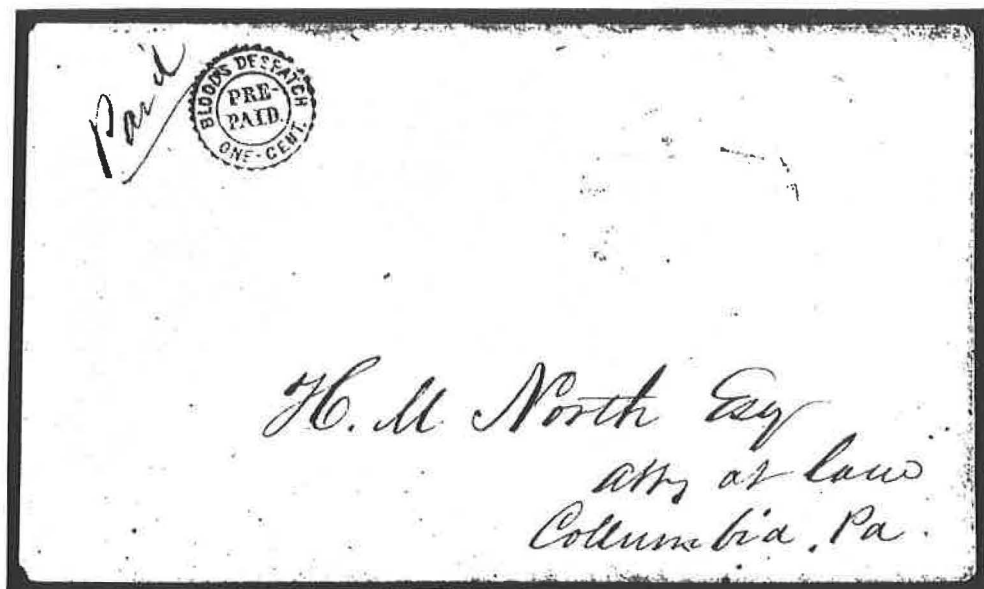 Paid
BLOOD'S DESPATCH
PRE-
PAID.
ONE-CENT.
H. M. North Esq
atty at law
Collumbia, Pa.